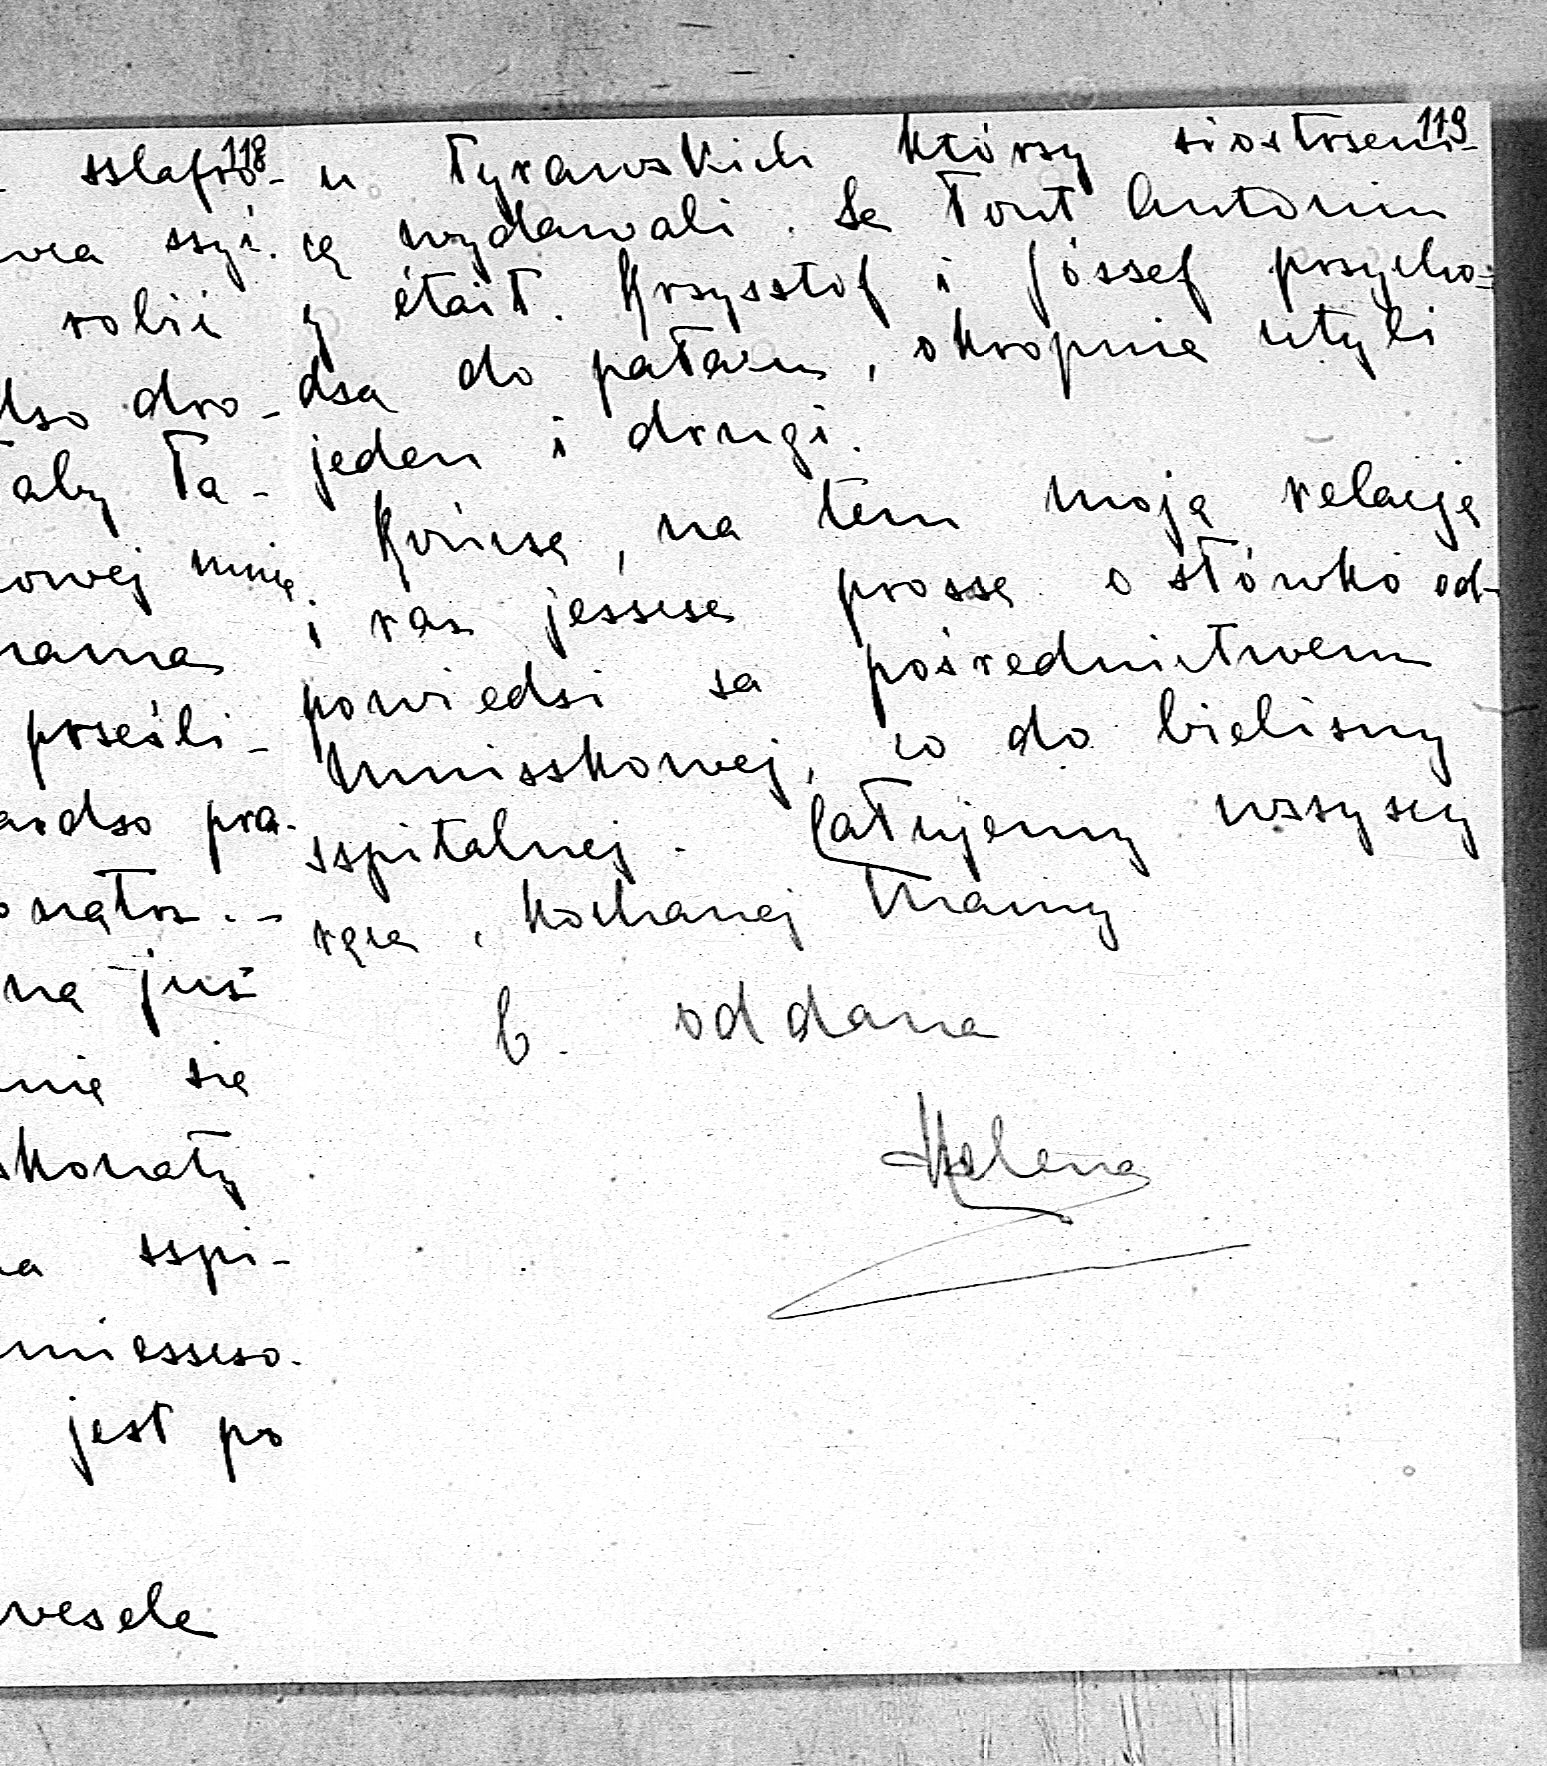 118
szlafro-
szyć.
robić
dzo dro-
aby ła-
owej mnie
rama
prześli-
ardzo pra-
na już
nie się
skonały
szpi-
mieszczo-
jest po
wesele
119
u Tyrawskich którzy siostrzeni-
cę wydawali. Le tout Antonin
y était. Krzysztof i Józef przycho-
dzą do pałacu, okropnie utyli
jeden i drugi.
Kończę, na tem moją relację
i raz jeszcze proszę o słówko od-
powiedzi za pośrednictwem
Mniszkowej, co do bielizny
szpitalnej. Całujemy wszyscy
ręce, kochanej Mamy
b. oddana
Helena